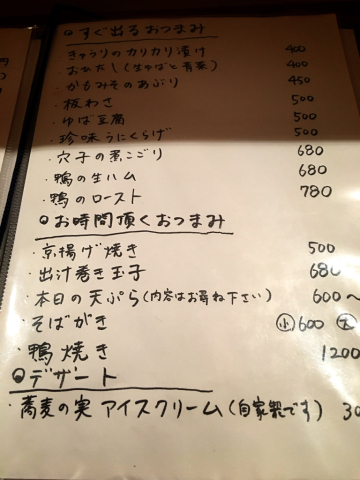 すぐ出るおつまみ
・きゅうりのカリカリ漬け 400
・おひたし(生ゆばと青菜) 400
・かもみそのあぶり 450
・板わさ 500
・ゆば豆腐 500
・珍味うにくらげ 500
・穴子の煮こごり 680
・鴨の生ハム 680
・鴨のロースト 780
お時間頂くおつまみ
・京揚げ焼き 500
・出汁巻き玉子 680
・本日の天ぷら(内容はお尋ね下さい) 600〜
・そばがき 小600 大
・鴨焼き 1200
デザート
・蕎麦の実 アイスクリーム(自家製です) 30